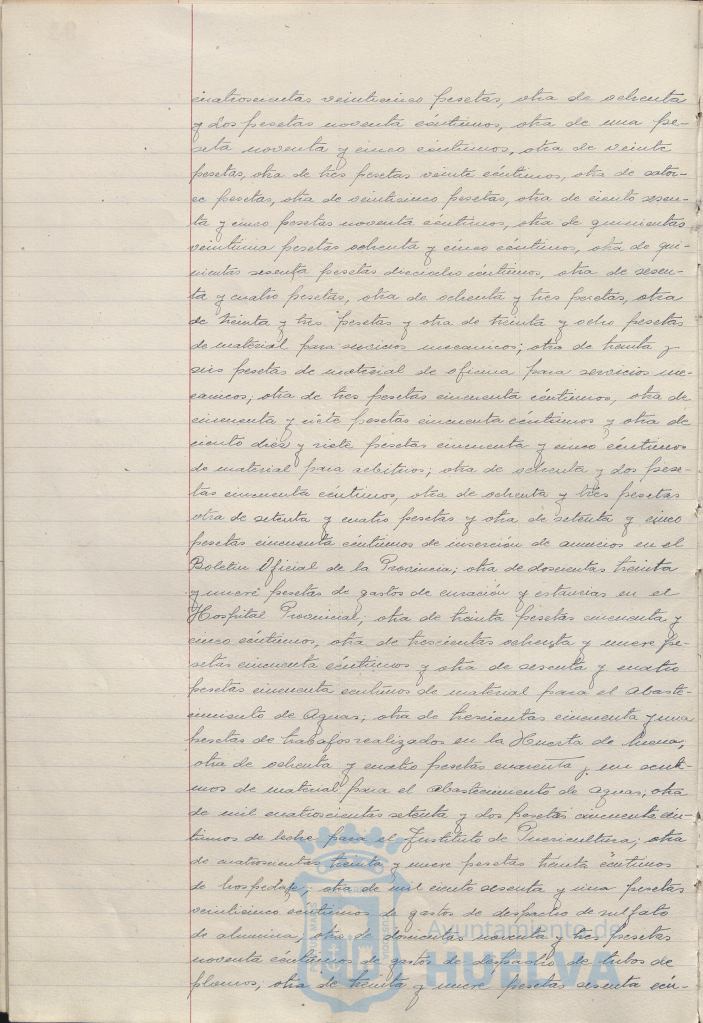 cuatrocientas veinticinco pesetas, otra de ochenta
y dos pesetas noventa céntimos, otra de una pe-
seta noventa y cinco céntimos, otra de veinte
pesetas, otra de tres pesetas veinte céntimos, otra de cator-
ce pesetas, otra de veinticinco pesetas, otra de ciento sesen-
ta y cinco pesetas noventa céntimos, otra de quinientas
veintiuna pesetas ochenta y cinco céntimos, otra de qui-
nientas sesenta pesetas dieciocho céntimos, otra de sesen-
ta y cuatro pesetas, otra de ochenta y tres pesetas, otra
de treinta y tres pesetas y otra de treinta y ocho pesetas
de material para servicios mecanicos; otra de treinta y
seis pesetas de material de oficina para servicios me-
canicos; otra de tres pesetas cincuenta céntimos, otra de
cincuenta y siete pesetas cincuenta céntimos y otra de
ciento diez y siete pesetas cincuenta y cinco céntimos
de material para arbitrios; otra de ochenta y dos pese-
tas cincuenta céntimos, otra de ochenta y tres pesetas
otra de setenta y cuatro pesetas y otra de setenta y cinco
pesetas cincuenta céntimos de inserción de anuncios en el
Boletin Oficial de la Provincia; otra de doscientas treinta
y nueve pesetas de gastos de curación y estancias en el
Hospital Provincial; otra de treinta pesetas cincuenta y
cinco céntimos, otra de trescientas ochenta y nueve pe-
setas cincuenta céntimos y otra de sesenta y cuatro
pesetas cincuenta centimos de material para el Abaste-
cimiento de Aguas; otra de trescientas cincuenta y una
pesetas de trabajos realizados en la Huerta de Mena,
otra de ochenta y cuatro pesetas cuarenta y un centi-
mos de material para el abastecimiento de aguas; otra
de mil cuatrocientas setenta y dos pesetas cincuenta cén-
timos de leche para el Instituto de Puericultura; otra
de cuatrocientas treinta y nueve pesetas treinta céntimos
de hospedaje; otra de mil ciento sesenta y una pesetas
veinticinco centimos de gastos de despacho de sulfato
de alumina, otra de doscientas noventa y tres pesetas
noventa céntimos de gastos de despacho de tubos de
plomos; otra de treinta y nueve pesetas sesenta cén-
Ayuntamiento de
HUELVA